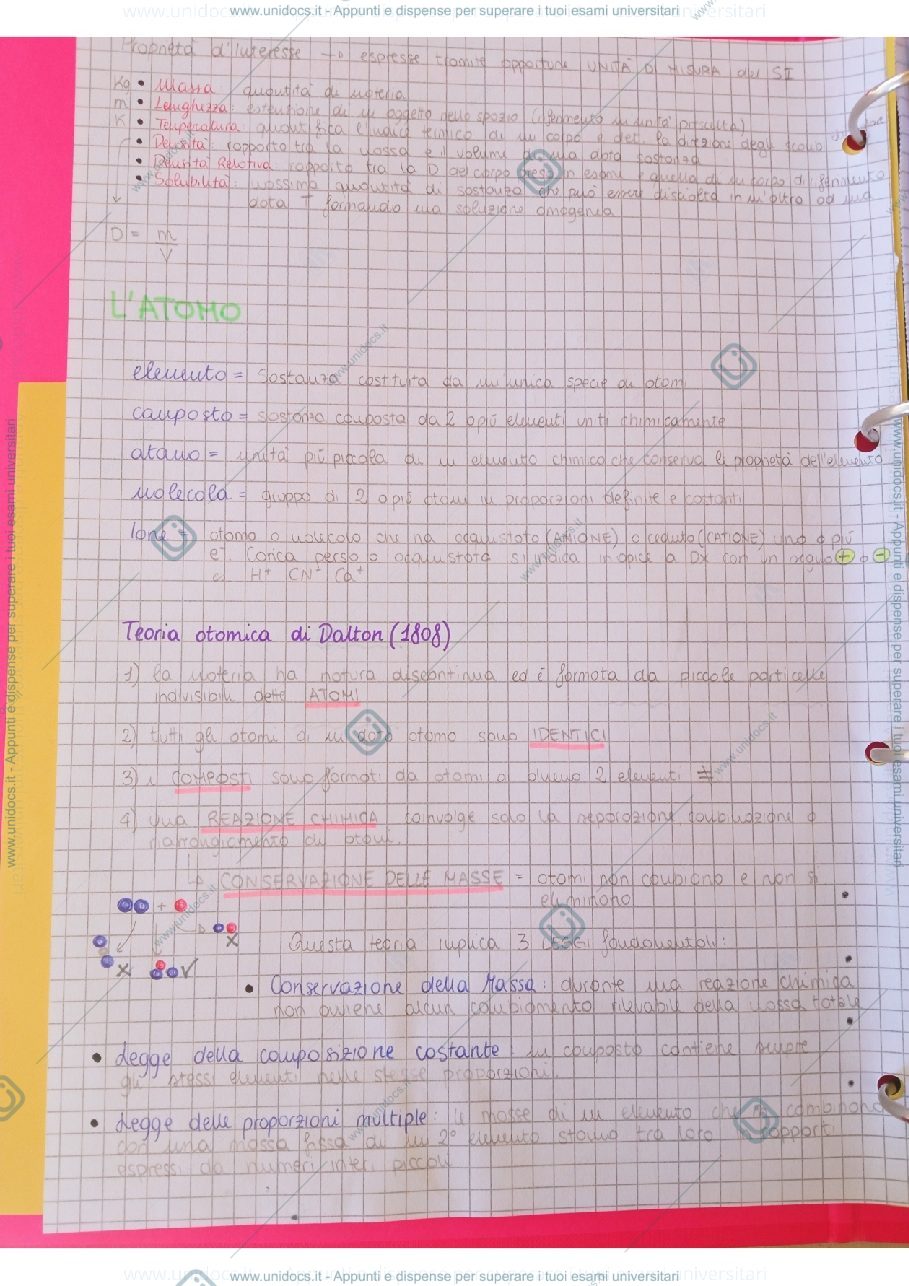 www.unidocs.it - Appunti e dispense per superare i tuoi esami universitari
Proprietà d'interesse → espresse tramite opportune UNITÀ DI MISURA del SI
Kg • Massa quantità di materia
m • Lunghezza: estensione di un oggetto nello spazio (riferimento
K • Temperatura: quantifica l'indice termico di un corpo e det. la direzione degli scambi
• Densità: rapporto tra la massa e il volume di una data sostanza
• Densità Relativa: rapporto tra la D del corpo preso in esame e quella di un corpo di riferimento
• Solubilità: massima quantità di sostanza che può essere disciolta in un'altra ad una
data T formando una soluzione omogenea
D = m
V
L'ATOMO
elemento = sostanza costituita da un'unica specie di atomi
composto = sostanza composta da 2 o più elementi uniti chimicamente
atomo = unità più piccola di un elemento chimico che conserva le proprietà dell'elemento
molecola = gruppo di 2 o più atomi in proporzioni definite e costanti
Ione = atomo o molecola che ha acquistato (ANIONE) o ceduto (CATIONE) uno o più
e⁻. Carica persa o acquistata si indica in apice a Dx con un segno + o -
H⁺ CN⁻ Ca⁺
Teoria atomica di Dalton (1808)
1) la materia ha natura discontinua ed è formata da piccole particelle
indivisibili dette ATOMI
2) tutti gli atomi di un dato atomo sono IDENTICI
3) i COMPOSTI sono formati da atomi di almeno 2 elementi ≠
4) una REAZIONE CHIMICA coinvolge solo la separazione combinazione o
riarrangiamento di atomi.
→ CONSERVAZIONE DELLE MASSE = atomi non cambiano e non si
eliminano
Questa teoria implica 3 LEGGI fondamentali:
• Conservazione della Massa: durante una reazione chimica
non avviene alcun cambiamento rilevabile della massa totale
• Legge della composizione costante: un composto contiene sempre
gli stessi elementi nelle stesse proporzioni.
• Legge delle proporzioni multiple: le masse di un elemento che si combinano
con una massa fissa di un 2° elemento stanno tra loro in rapporti
espressi da numeri interi piccoli
www.unidocs.it - Appunti e dispense per superare i tuoi esami universitari